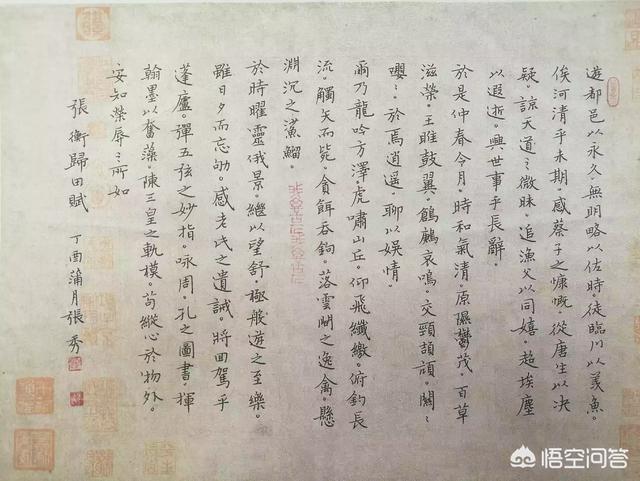 遊都邑以永久。無明略以佐時。徒臨川以羡魚。
俟河清乎未期。感蔡子之慷慨。從唐生以决
疑。諒天道之微昧。追漁父以同嬉。超埃塵
以遐逝。與世事乎長辭。
於是仲春令月。時和氣清。原隰鬱茂。百草
滋榮。王雎鼓翼。鶬鶊哀鳴。交頸頡頏。關〻
嚶〻。於焉逍遥。聊以娱情。
爾乃龍吟方澤。虎嘯山丘。仰飛纖繳。俯釣長
流。觸矢而斃。貪餌吞鉤。落雲間之逸禽。懸
淵沉之魦鰡。
於時曜靈俄景。繼以望舒。極般遊之至樂。
雖日夕而忘劬。感老氏之遺誡。將回駕乎
蓬廬。彈五弦之妙指。咏周。孔之圖書。揮
翰墨以奮藻。陳三皇之軌模。苟縱心於物外。
安知榮辱之所如
張衡歸田賦 丁酉蒲月張秀
悟空问答